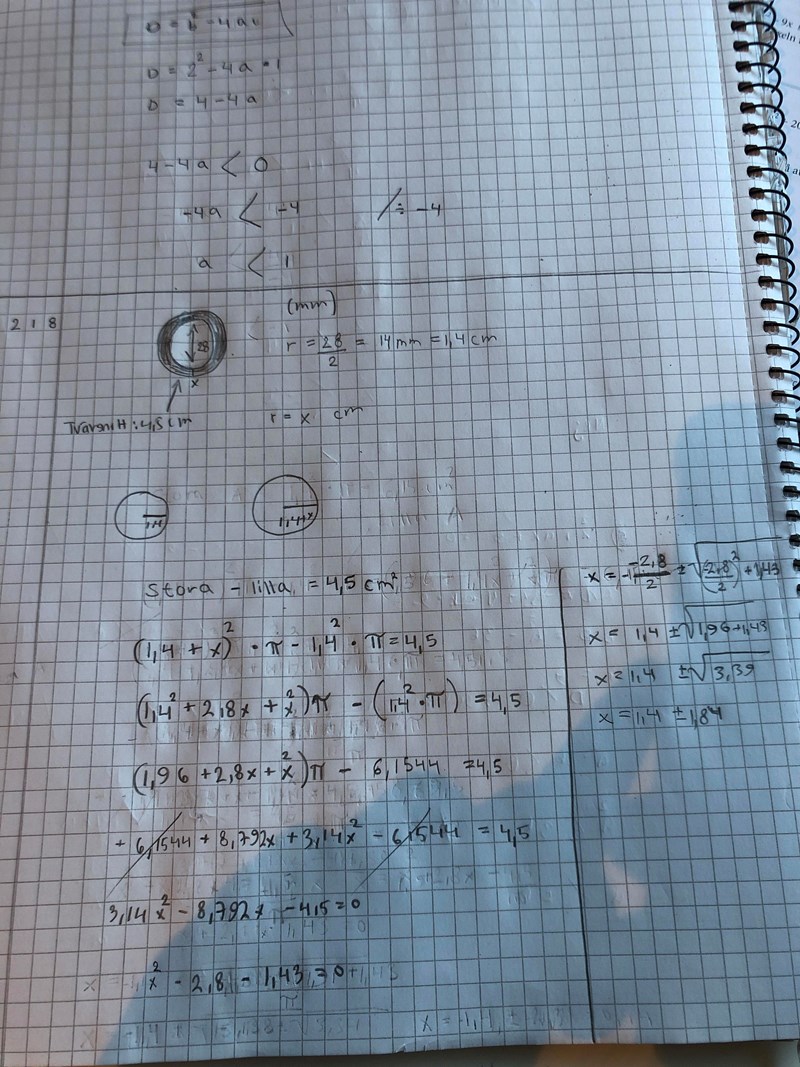 D = b² - 4ac
D = 2² - 4a · 1
D = 4 - 4a
4 - 4a < 0
-4a < -4 /÷ -4
a < 1
218
(mm)
28
r = 28/2 = 14 mm = 1,4 cm
x
Tvärsnitt: 4,5 cm
r = x cm
1,4
1,4+x
Stora - lilla = 4,5 cm²
(1,4 + x)² · π - 1,4² · π = 4,5
(1,4² + 2,8x + x²)π - (1,4² · π) = 4,5
(1,96 + 2,8x + x²)π - 6,1544 = 4,5
+ 6,1544 + 8,792x + 3,14x² - 6,1544 = 4,5
3,14x² - 8,792x - 4,5 = 0
x² - 2,8 - 1,43 = 0
x = - -2,8/2 ± √(-2,8/2)² + 1,43
x = 1,4 ± √1,96 + 1,43
x = 1,4 ± √3,39
x = 1,4 ± 1,84
9x
keln
20